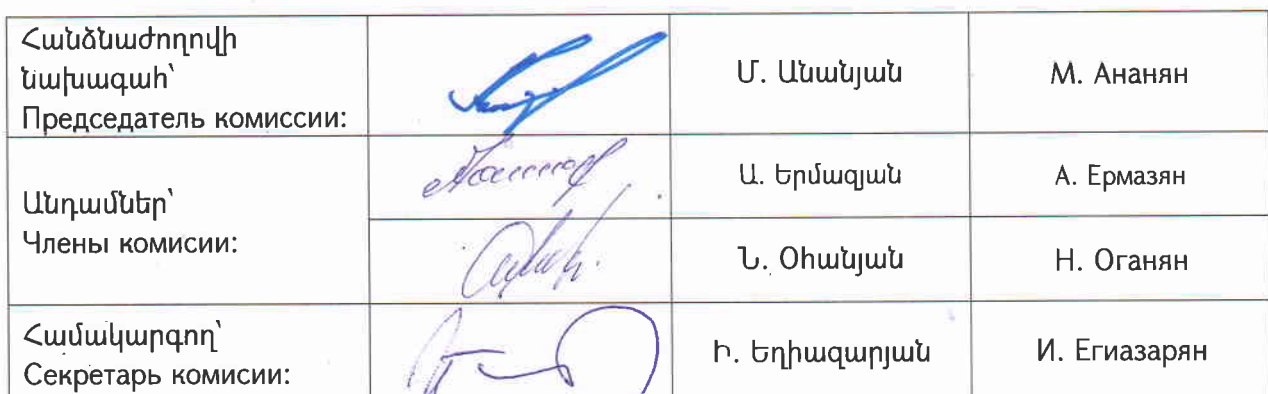 Հանձնաժողովի
նախագահ՝
Председатель комиссии:
Մ. Անանյան
М. Ананян
Անդամներ՝
Члены комисии:
Ա. Երմազյան
А. Ермазян
Ն. Օհանյան
Н. Оганян
Համակարգող՝
Секретарь комисии:
Ի. Եղիազարյան
И. Егиазарян